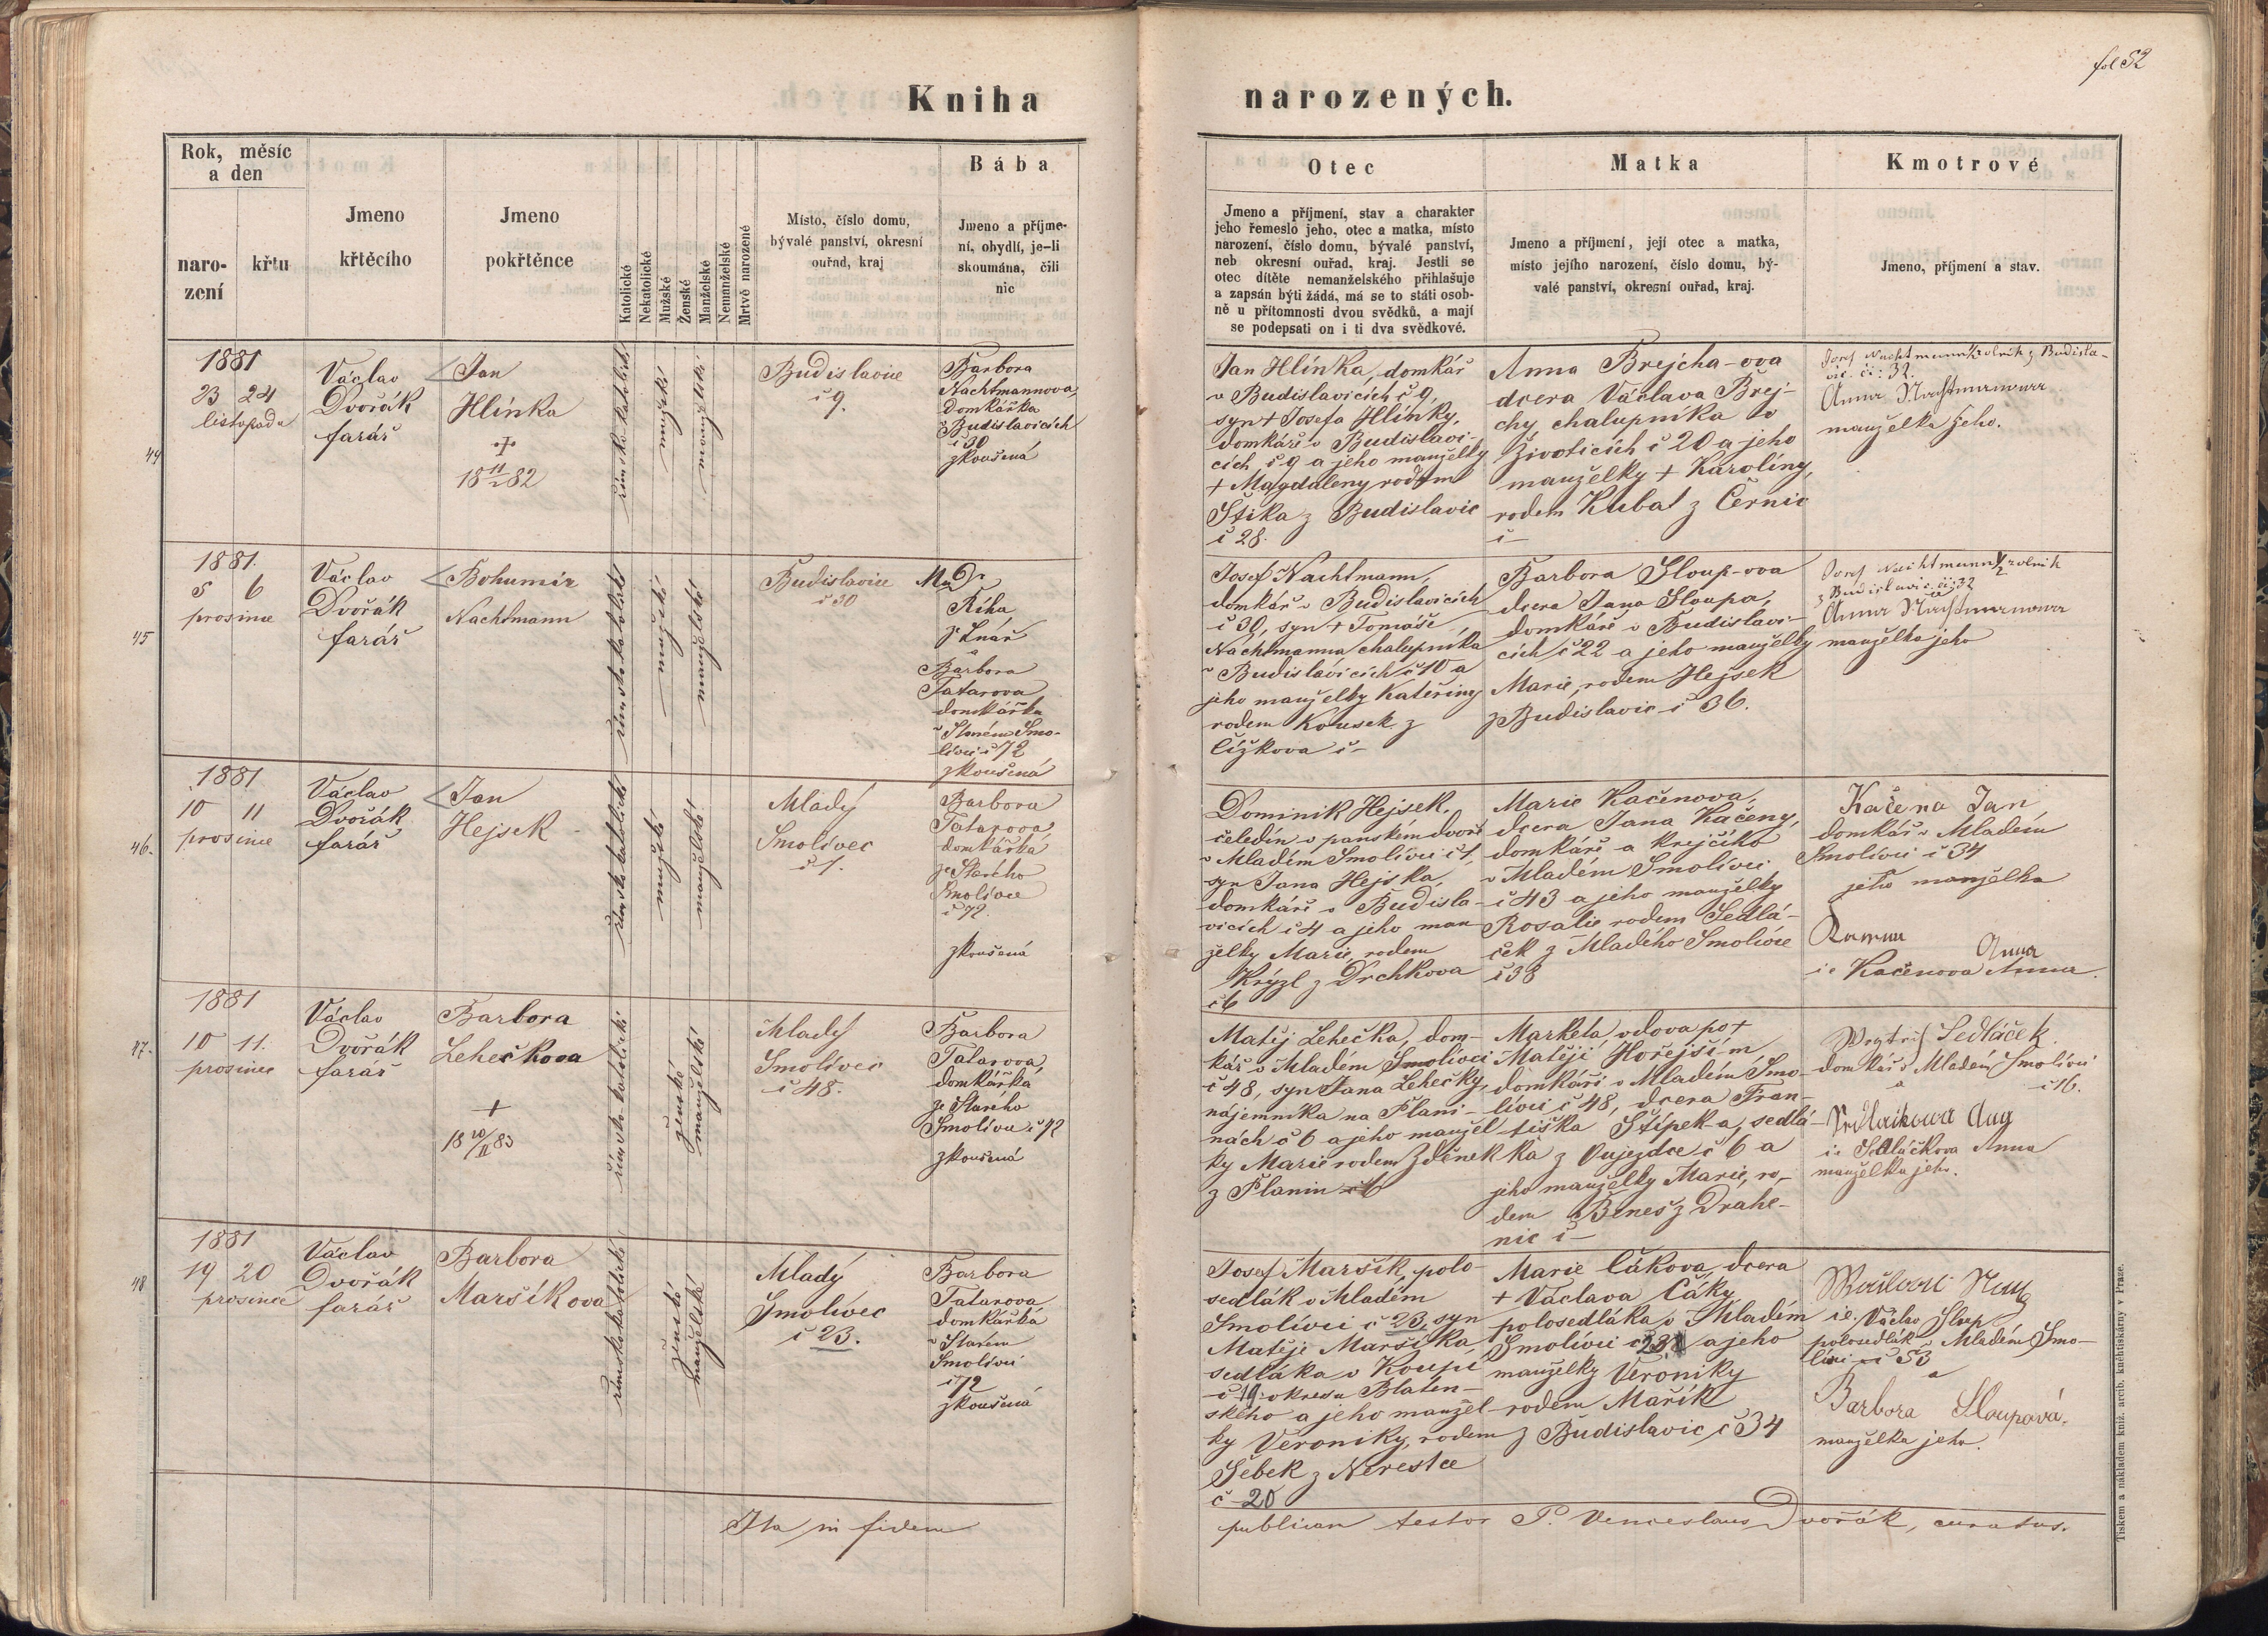 fol 52
Kniha narozených.
Rok, měsíc
a den
naro-
zení
křtu
Jmeno
křtěcího
Jmeno
pokřtěnce
Katolické
Nekatolické
Mužské
Ženské
Manželské
Nemanželské
Mrtvě narozené
Místo, číslo domu,
bývalé panství, okresní
ouřad, kraj
Bába
Jmeno a příjme-
ní, obydlí, je-li
skoumána, čili
nic
Otec
Jmeno a příjmení, stav a charakter
jeho řemeslo jeho, otec a matka, místo
narození, číslo domu, bývalé panství,
neb okresní ouřad, kraj. Jestli se
otec dítěte nemanželského přihlašuje
a zapsán býti žádá, má se to státi osob-
ně u přítomnosti dvou svědků, a mají
se podepsati on i ti dva svědkové.
Matka
Jmeno a příjmení, její otec a matka,
místo jejího narození, číslo domu, bý-
valé panství, okresní ouřad, kraj.
Kmotrové
Jmeno, příjmení a stav.
44
1881
23 24
listopadu
Václav
Dvořák
farář
Jan
Hlínka
+
18 11/2 82
římsko katolické
mužské
manželské
Budislavice
č 9.
Barbora
Nachtmannova,
Domkářka
v Budislavicích
č 30
zkoušená
Jan Hlínka, domkář
v Budislavicích č 9,
syn + Josefa Hlínky,
domkáře v Budislavi-
cích, č 9 a jeho manželky
+ Magdaleny, rodem
Štika z Budislavic
č 28.
Anna Brejcha-ova
dcera Václava Brej-
chy, chalupníka v
Životicích č 20 a jeho
manželky + Karolíny,
rodem Kubat z Černic
č —
Josef Nachtmann rolník z Budisla-
vic. či: 32.
Anna Nachtmanowa
manželka jeho.
45
1881.
5 6
prosince
Václav
Dvořák
farář
Bohumír
Nachtmann
římsko katolické
mužské
manželské
Budislavice
č 30
MuDr
Říha
ze Lnář
a
Barbora
Tatarova
domkářka
v Starém Smo-
livci č 72
zkoušená
Josef Nachtmann,
domkář v Budislavicích
č 30, syn + Tomáše
Nachtmanna chalupníka
v Budislavicích č 10 a
jeho manželky Kateřiny
rodem Kousek z
Čížkova č —
Barbora Sloup-ova
dcera Jana Sloupa,
domkáře v Budislavi-
cích č 22 a jeho manželky
Marie, rodem Hejsek
z Budislavic č 36.
Josef Nachtmann rolník
z Budislavic či: 32
a
Anna Nachtmanowa
manželka jeho
46.
1881
10 11
prosince
Václav
Dvořák
farář
Jan
Hejsek
římsko katolické
mužské
manželské
Mladý
Smolivec
č 1.
Barbora
Tatarova
domkářka
ze Starého
Smolivce
č 72.
zkoušená
Dominik Hejsek,
čeledín v panském dvoře
v Mladém Smolivci č 1,
syn Jana Hejska,
domkáře v Budisla-
vicích č 4 a jeho man-
želky Marie, rodem
Krýzl z Drchkova
č 6
Marie Kačenova,
dcera Jana Kačeny,
domkáře a krejčího
v Mladém Smolivci
č 43 a jeho manželky
Rosalie rodem Sedlá-
ček z Mladého Smolivce
č 38
Kačena Jan
domkář v Mladém
Smolivci č 34
jeho manželka
Anna
ie Kačenova Anna.
47.
1881
10 11.
prosince
Václav
Dvořák
farář
Barbora
Lehečkova
+
18 20/II 83
římsko katolické
ženské
manželské
Mladý
Smolivec
č 48.
Barbora
Tatarova,
domkářka
ze Starého
Smolivce č 72
zkoušená
Matěj Lehečka, dom-
kář v Mladém Smolivci
č 48, syn Jana Lehečky,
nájemníka na Plani-
nách č 6 a jeho manžel-
ky Marie rodem Zdenek
z Planin č 6
Markéta vdova po +
Matěji Hořejším
domkáři v Mladém Smo-
livci č 48, dcera Fran-
tiška Štípek-a, sedlá-
ka z Vujezdce č 6 a
jeho manželky Marie, ro-
dem Beneš z Drahe-
nic č —
Sedláček
domkář v Mladém Smolivci
a č 16.
ie Sedláčkova Anna
manželka jeho.
48
1881
19 20
prosince
Václav
Dvořák
farář
Barbora
Maršíkova
římsko katolické
ženské
manželské
Mladý
Smolivec
č 23.
Barbora
Tatarova
domkářka
v Starém
Smolivci
č 72
zkoušená
Josef Maršík, polo-
sedlák v Mladém
Smolivci č 23, syn
Matěje Maršíka,
sedláka v Koupi
č 19 okresu Blaten-
ského a jeho manžel-
ky Veroniky, rodem
Šebek z Nerestce
č 20
Marie Cákova, dcera
+ Václava Cáky
polosedláka v Mladém
Smolivci č 23 a jeho
manželky Veroniky
rodem Mařík
z Budislavic č 34
ie. Václav Sloup
polosedlák v Mladém Smo-
livci č 53
a
Barbora Sloupová.
manželka jeho.
Ita in fidem publicam testor P. Venceslaus Dvořák, curatus.
Tiskem a nákladem kniž. arcib. kněhtiskárny v Praze.